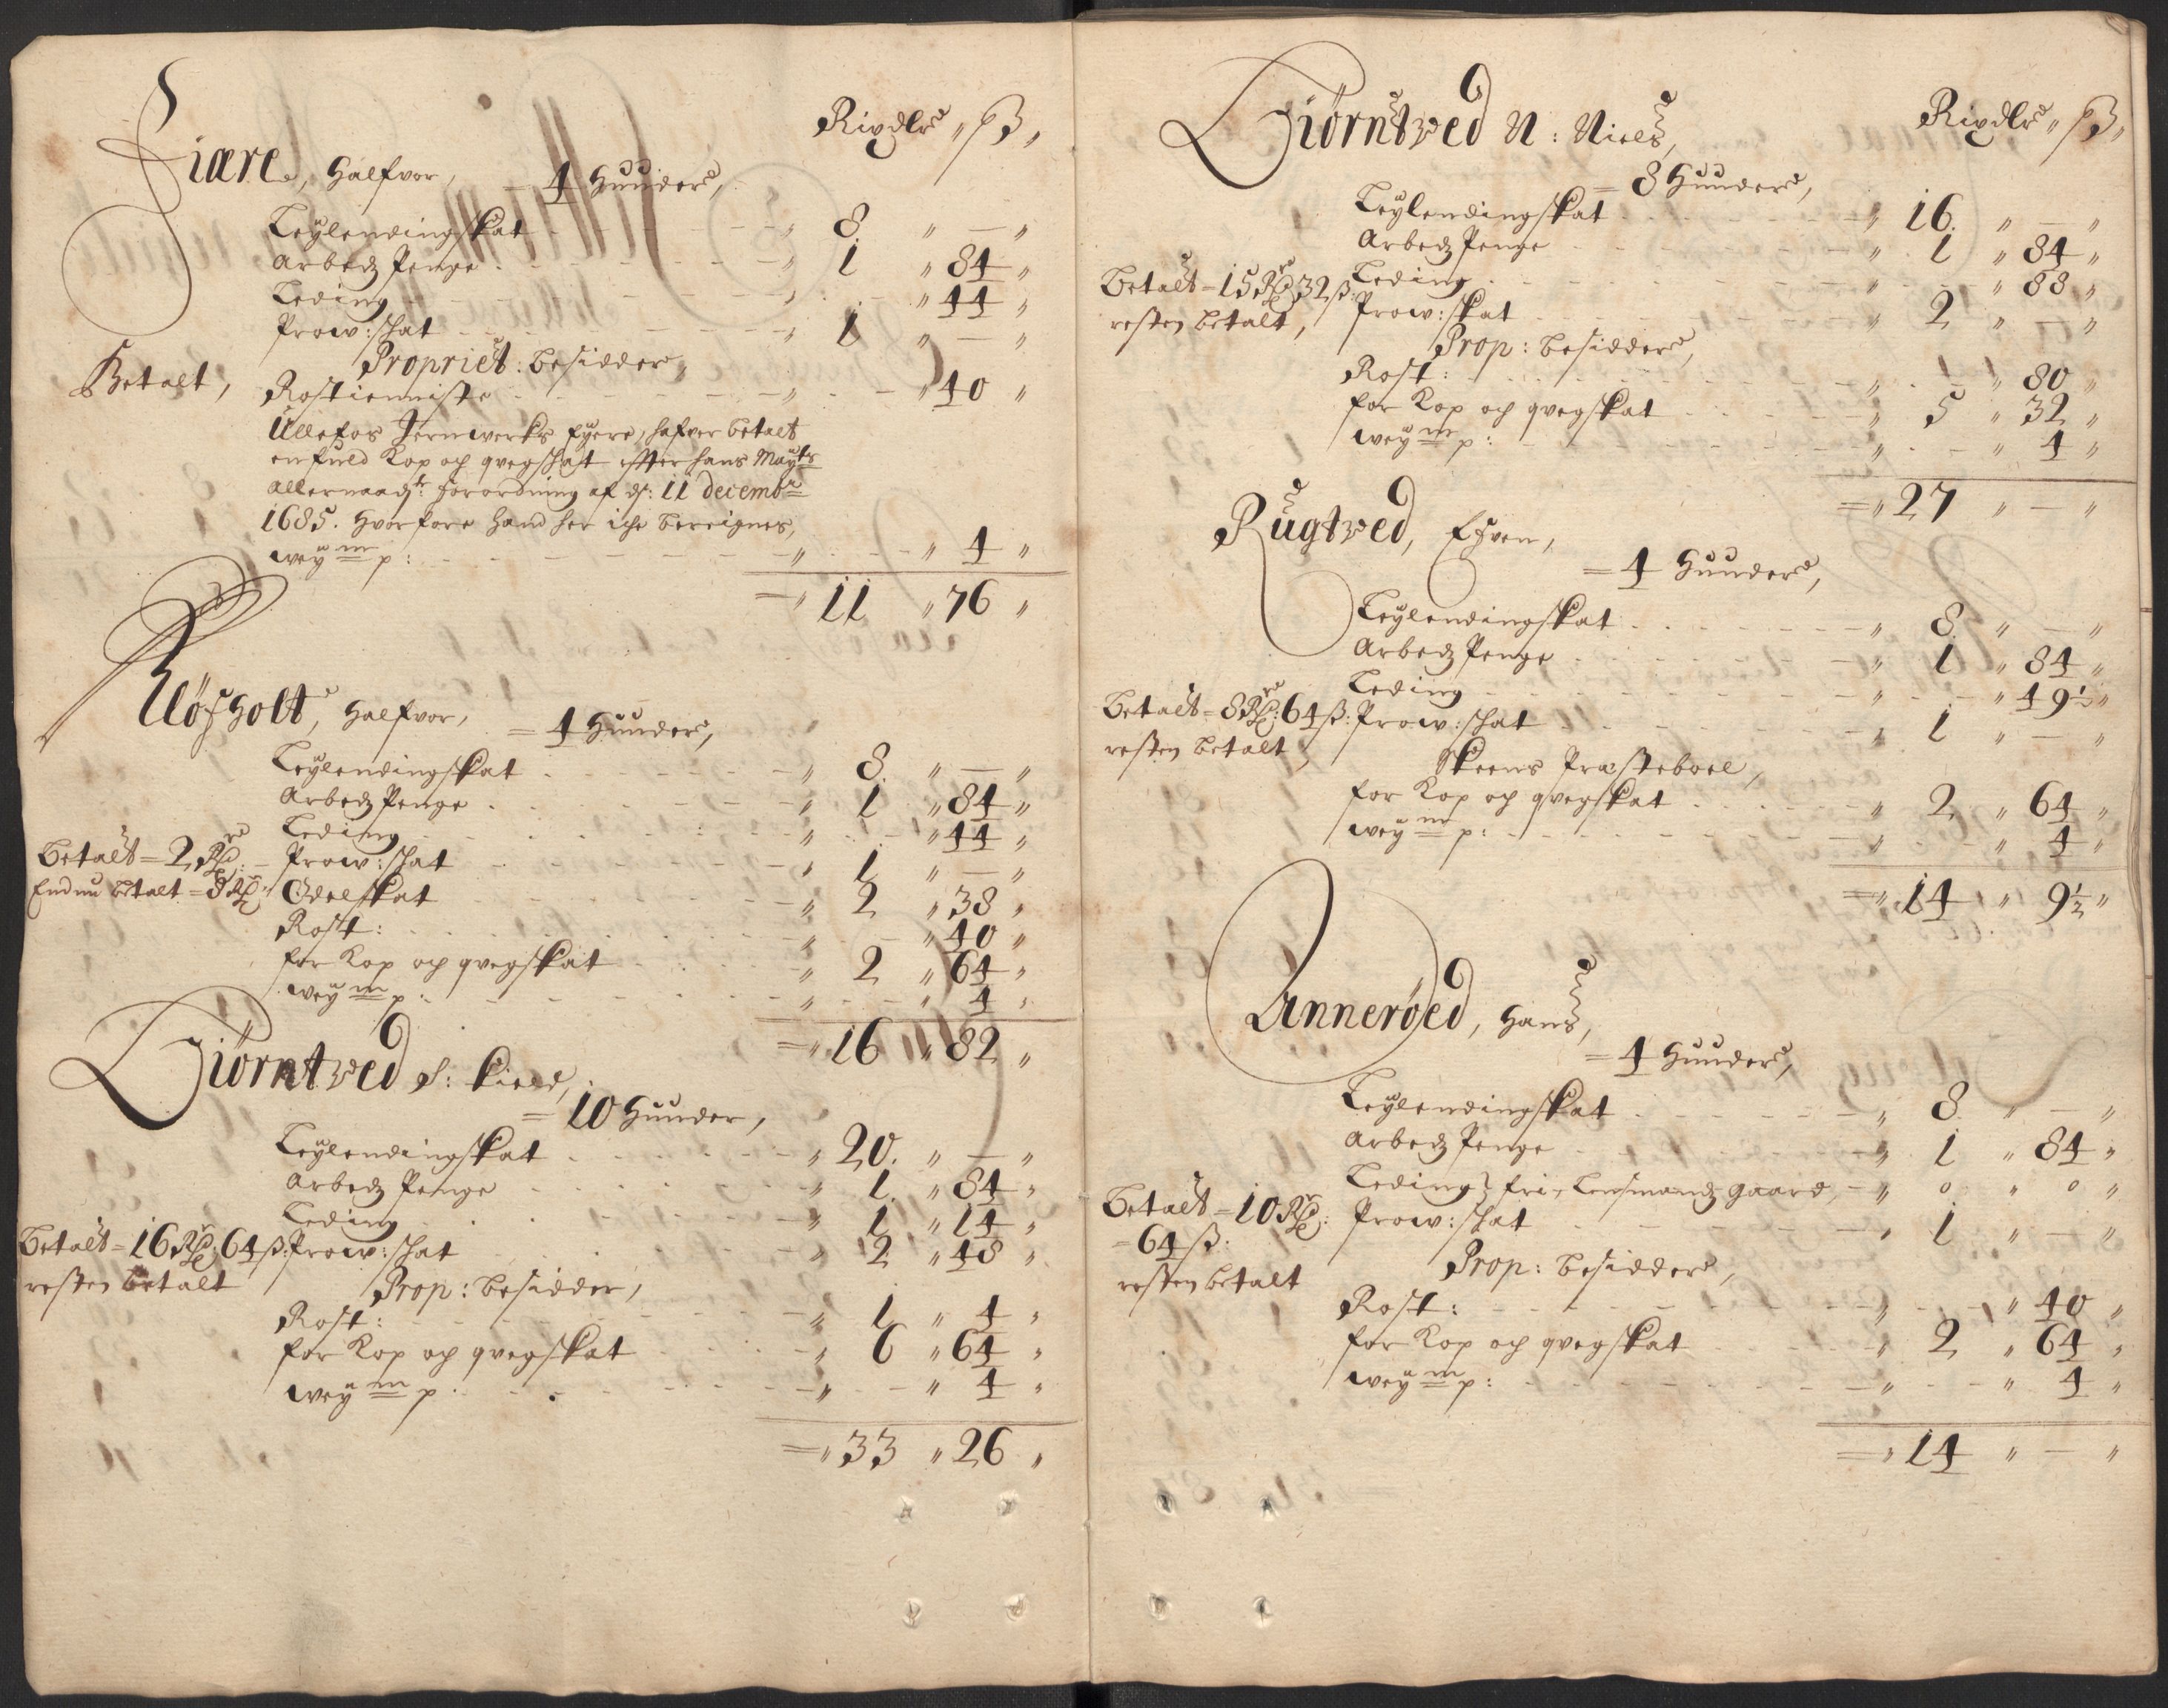 Rixdlr " ß "
Fiære, Halfvor,
4 Hunder,
Leylendingskat - " 8 " — "
Arbedz Penge - " 1 " 84 "
Leding - " - " 44 "
Prow: schat - " 1 " — "
Propriet: besidder,
Betalt, Rostienniste - " - " 40 "
Ullefos Jernwerks Eyere, hafver betalt
en fuld Kop och qvegschat effter hans Mayts
allernaadst: forordning af ds: 11 decembr
1685. hvorfore hand her iche bereignes,
wey m p: - " - " 4 "
= " 11 " 76 "
Kløfholt, Halfvor,
= 4 Hunder,
Leylendingskat - " 8. " — "
Arbedz Penge - " 1 " 84 "
Leding - " - " 44 "
Betalt = 2 Rd: - Prow: schat - " 1 " — "
Endnu betalt = 8 Rd: Odelskat - " 2 " 38 "
Rost: - " - " 40 "
for Kop och qvegskat - " 2 " 64 "
wey m p: - " - " 4 "
= " 16 " 82 "
Tiørntved S: Kield,
= 10 Hunder,
Leylendingskat - " 20. " — "
Arbedz Penge - " 1. " 84 "
Leding - " 1 " 14 "
Betalt = 16 Rd: 64 ß: Prow: schat " 2 " 48 "
resten betalt Prop: besidder,
Rost: - " 1 " 4 "
for Kop och qvegskat - " 6 " 64 "
wey m p: - " - " 4 "
= " 33 " 26 "
Rixdlr " ß "
Tiørntved N: Niels,
= 8 Hunder,
Leylendingskat - " 16. " — "
Arbedz Penge - " 1 " 84 "
Betalt = 15 Rd 32 ß: Leding - " - " 88 "
resten betalt, Prow: skat - " 2 " — "
Prop: besidder,
Rost: - " - " 80 "
for Kop och qvegskat - " 5 " 32 "
wey m p: - " - " 4 "
= " 27 " — "
Rugtved, Efven,
= 4 Hunder,
Leylendingskat - " 8. " — "
Arbedz Penge - " 1 " 84 "
Leding - " - " 49½ "
Betalt = 8 Rd: 64 ß: Prow: schat - " 1 " — "
resten betalt
Skeens Præsteboel,
for Kop och qvegskat - " 2 " 64 "
wey m p: - " - " 4 "
= " 14 " 9½ "
Annerøed, Hans,
= 4 Hunder,
Leylendingskat - " 8 " — "
Arbedz Penge - " 1 " 84 "
Leding fri, Lensmandz gaard, - " 0 " 0 "
Betalt = 10 Rd: Prow: schat - " 1 " — "
= 64 ß:
Prop: besidder,
resten betalt
Rost: - " - " 40 "
for Kop och qvegskat - " 2 " 64 "
wey m p: - " - " 4 "
= " 14 " — "